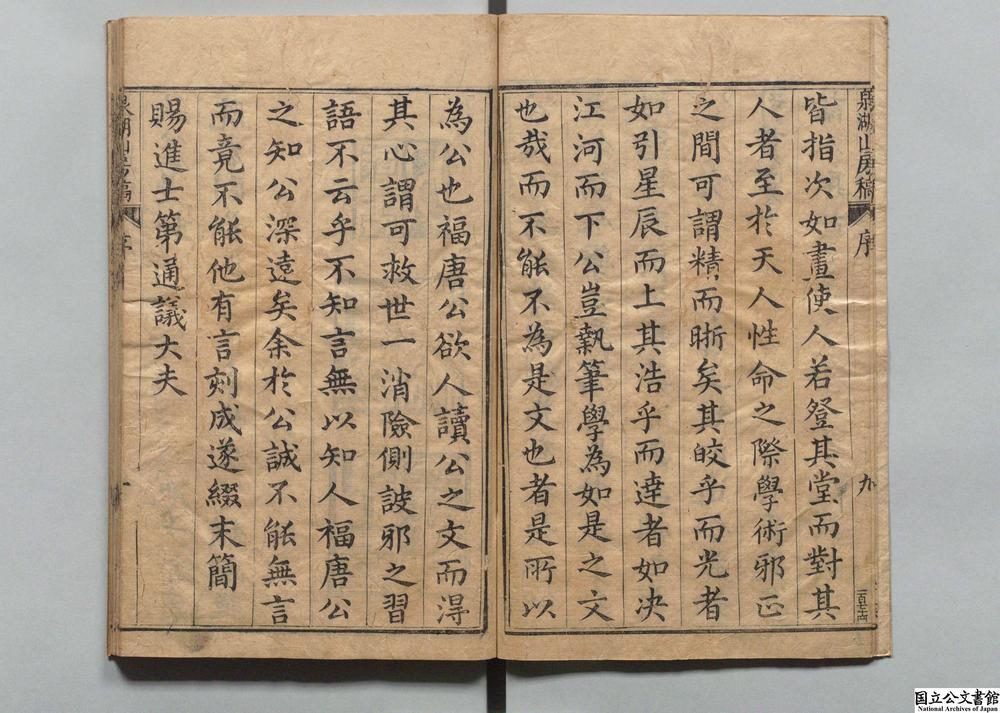 泉湖山房稿
序
九
皆指次如畫使人若登其堂而對其
人者至於天人性命之際學術邪正
之間可謂精而晣矣其皎乎而光者
如引星辰而上其浩乎而達者如决
江河而下公豈執筆學為如是之文
也哉而不能不為是文也者是所以
為公也福唐公欲人讀公之文而得
其心謂可救世一消險側詖邪之習
語不云乎不知言無以知人福唐公
之知公深遠矣余於公誠不能無言
而竟不能他有言刻成遂綴末簡
賜進士第通議大夫
湖山房稿
序
国立公文書館
National Archives of Japan